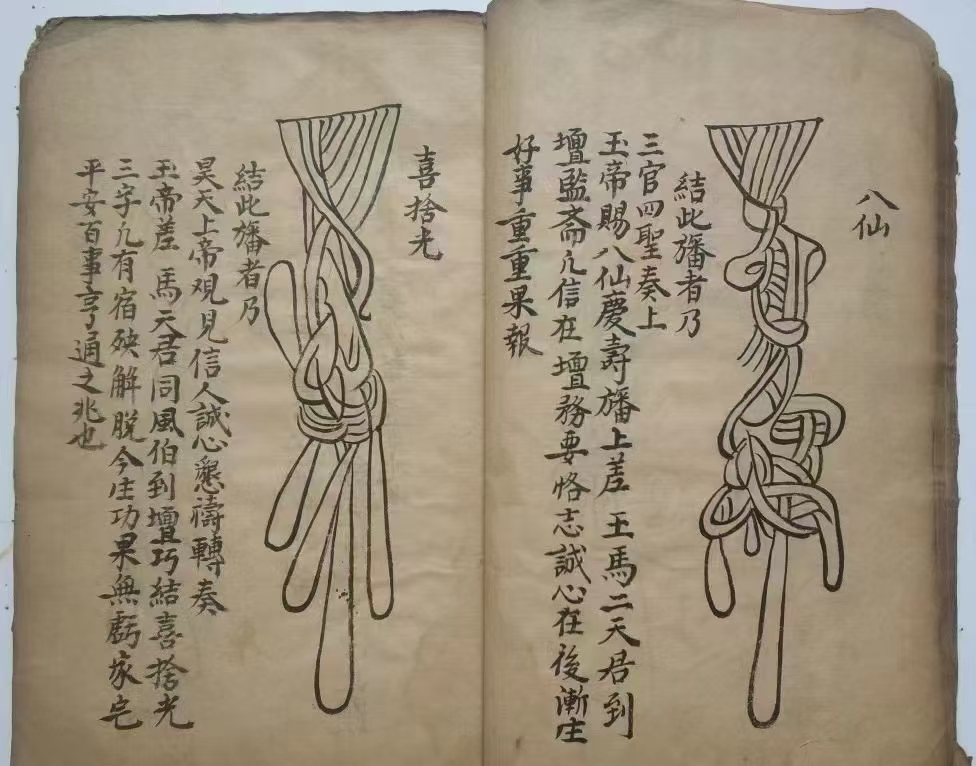 八仙
結此旛者乃
三官四聖奏上
玉帝賜八仙慶壽旛上差 王馬二天君到
壇監斋凢信在壇務要恪志誠心在後漸庄
好事重重果報
喜捨光
結此旛者乃
昊天上帝观見信人誠心懇禱轉奏
玉帝差 馬天君同風伯到壇巧結喜捨光
三字凢有宿殃解脱今庄功果無虧家宅
平安百事亨通之兆也